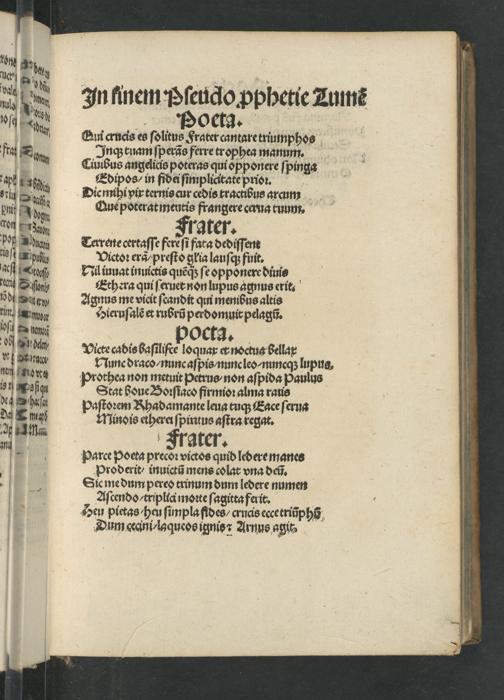 In finem Pseudo ꝓphetie Tumē
Poeta.
Qui crucis es solitus Frater cantare triumphos
Inqꝫ tuam sperās ferre trophea manum.
Ciuibus angelicis poteras qui opponere spinga
Edipos/ in fidei simplicitate prior.
Dic mihi vir ternis cur cedis tractibus arcum
Que poterat mentis frangere cerua tuum.
Frater.
Terrene certasse fere si fata dedissent
Victor erā/ presto gl̄ia lausqꝫ fuit.
Nil iuuat inuictis quēqꝫ se opponere diuis
Ethera qui seruet non lupus agnus erit.
Agnus me vicit scandit qui menibus altis
Hierusalē et rubrū perdomuit pelagū.
poeta.
Victe cadis basilisce loquax et noctua bellax
Nunc draco/ nunc aspis/ nunc leo/ nuncqꝫ lupus.
Prothea non metuit Petrus/ non aspida Paulus
Stat boue Borsiaco firmior alma ratis
Pastorem Rhadamante leua tuqꝫ Eace serua
Minois etherei spiritus astra regat.
Frater.
Parce Poeta precor victos quid ledere manes
Proderit/ inuictū mens colat vna deū.
Sic me dum pereo trinum dum ledere numen
Ascendo/ triplici morte sagitta ferit.
Heu pietas/ heu simpla fides/ crucis ecce triūphū
Dum cecini/ laqueos ignis ⁊ Arnus agit.